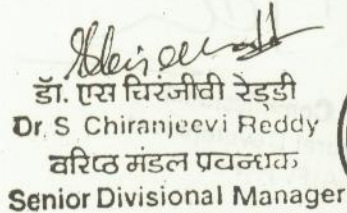 डॉ. एस चिरंजीवी रेड्डी
Dr. S Chiranjeevi Reddy
वरिष्ठ मंडल प्रबन्धक
Senior Divisional Manager